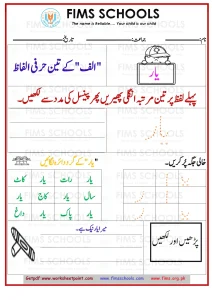 FIMS SCHOOLS
The name is Reliable.... Your child is our child
نام: جماعت: تاریخ:
"الف" کے تین حرفی الفاظ
یار
پہلے لفظ پر تین مرتبہ انگلی پھیریں پھر پینسل کی مدد سے لکھیں۔
خالی جگہ پُر کریں۔
"یار" کے گرد دائرہ لگائیں
یار رات یار کاٹ
سال یار کاج یار
یار پاک یار داغ
میرا یار نیک ہے۔
پڑھیں اور لکھیں
Getpdf www.worksheetpoint.com www.fimschools.com www.fims.org.pk